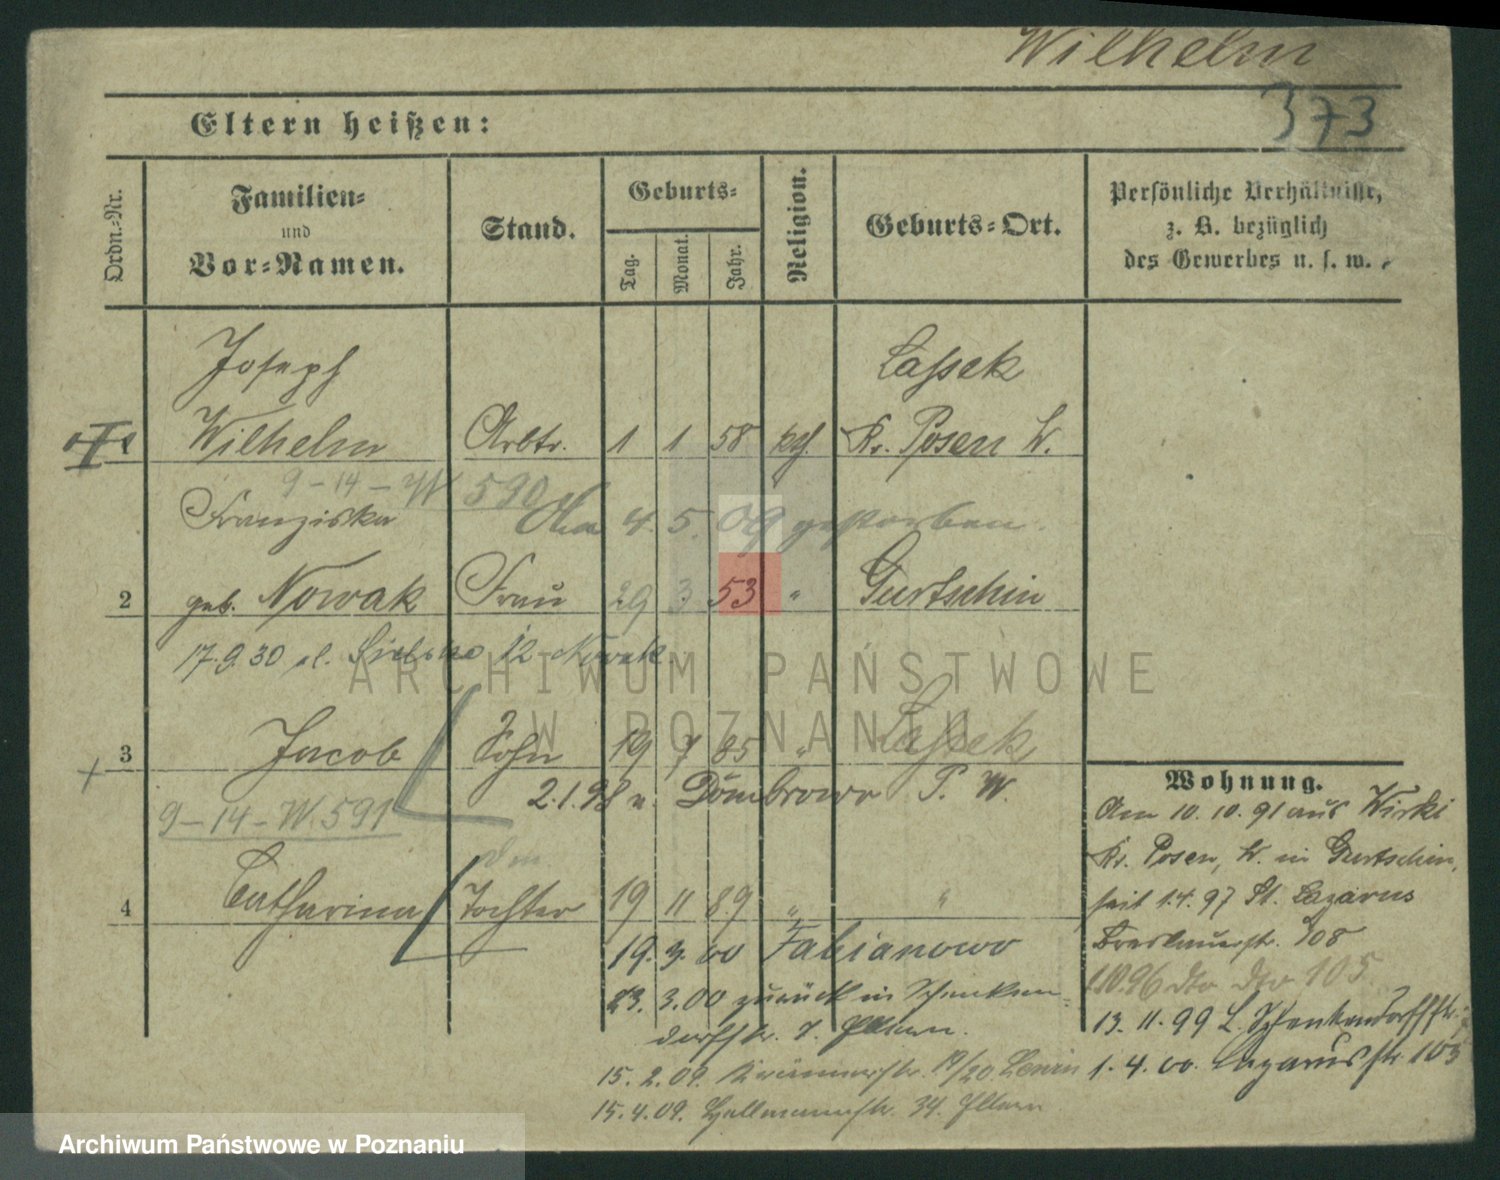 Wilhelm
373
Eltern heißen:
Ordn.-Nr.
Familien-
und
Vor-Namen.
Stand.
Geburts-
Tag.
Monat.
Jahr.
Religion.
Geburts-Ort.
Persönliche Verhältnisse,
z. B. bezüglich
des Gewerbes u. s. w.
Joseph Lassek
Wilhelm Arbtr. 1 1 58 kth. Kr. Posen W.
9-14-W 590
Franziska 4. 5. 09 gestorben.
2 geb. Nowak Frau 29 3. 53 " Gurtschin
17.9.30 12 Nowak
3 Jacob Sohn 19 7 85 " Lassek
2.1.98 n. Dombrowo P. W.
9-14-W.591
4 Catharina Tochter 19 11 89 " "
19. 3. 00 Fabianowo
23. 3.00 zurück in Schenken-
dorffstr. 7. Eltern.
15. 2. 09. 19/20
15.4.09. 34. Eltern
Wohnung.
Am 10. 10. 91 aus Wirki
Kr. Posen, W. in Gurtschin,
seit 1.4.97 St. Lazarus
Breslauerstr. 108
1.10.96 dto dto 105
13. 11. 99 L. Schenkendorffstr.
1. 4. 00. Lazarusstr. 103
ARCHIWUM PAŃSTWOWE
W POZNANIU
Archiwum Państwowe w Poznaniu